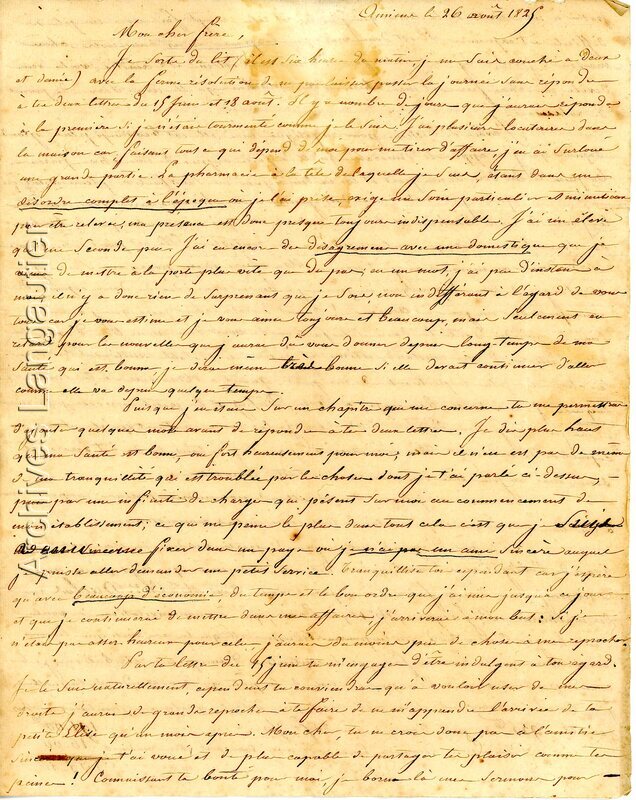 Amiens le 26 août 1825
Mon cher frère,
Je sors du lit (il est six heures du matin, je me suis couché à deux
et demie) avec la ferme résolution de ne pas laisser passer la journée sans répondre
à tes deux lettres du 15 juin et 18 août. Il y a nombre de jours que j'aurais répondu
à la première si je n'étais tourmenté comme je le suis. J'ai plusieurs locataires dans
la maison car faisant tout ce qui dépend de moi pour me tirer d'affaire, j'en ai surloué
une grande partie. La pharmacie à la tête de laquelle je suis, étant dans un
désordre complet à l'époque où je l'ai prise, exige un soin particulier et minutieux
pour être relevée; ma présence est donc presque toujours indispensable. J'ai un élève
qui me seconde peu. J'ai eu encore des désagréments avec une domestique que je
viens de mettre à la porte plus vite que du pas; en un mot, j'ai pas d'instant à
moi, il n'y a donc rien de surprenant que je sois, non indifférent à l'égard de vous
car je vous estime et je vous aime toujours et beaucoup, mais seulement en
retard pour les nouvelles que j'aurais dû vous donner depuis long-temps de ma
santé qui est bonne, je dirai même très bonne si elle devait continuer d'aller
comme elle va depuis quelque temps.
Puisque j'en suis sur un chapitre qui me concerne tu me permettras
d'ajouter quelques mots avant de répondre à tes deux lettres. Je dis plus haut
que ma santé est bonne, oui fort heureusement pour moi; mais il n'en est pas de même
de ma tranquillité qui est troublée par les choses dont je t'ai parlé ci-dessus,
par une infinité de charges qui pèsent sur moi au commencement de
mon établissement; ce qui me peine le plus dans tout cela c'est que je suis
fixer dans un pays où je n'ai pas un ami sincère auquel
je puisse aller demander un petit service. Tranquillise toi cependant car j'espère
qu'avec beaucoup d'économie, du temps et le bon ordre que j'ai mis jusqu'à ce jour
et que je continuerai de mettre dans mes affaires, j'arriverai à mon but: si je
n'étais pas assez heureux pour cela j'aurais du moins peu de choses à me reprocher.
Par ta lettre du 15 juin tu m'engages d'être indulgent à ton égard.
Je le suis naturellement, cependant tu conviendras qu'à vouloir user de mes
droits j'aurais de grands reproches à te faire de ne m'apprendre l'arrivée de ta
petite Elise qu'un mois après. Mon cher, tu ne crois donc pas à l'amitié
sincère que je t'ai vouée et de plus capable de partager tes plaisirs comme tes
peines! Connaissant ta bonté pour moi, je borne là mes sermons pour
Archives Langautie